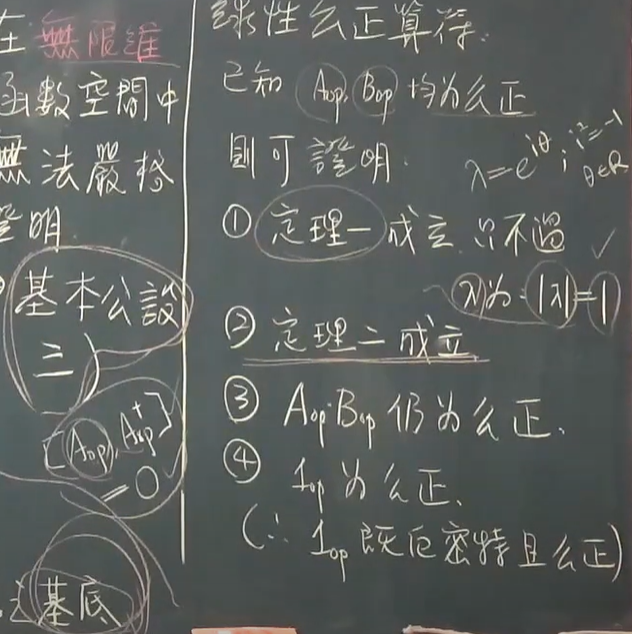 在無限維
函數空間中
無法嚴格
證明
基本公設
三
[Aop, Aop⁺]
=0
基底
線性么正算符.
已知 Aop, Bop 均為么正
則可證明.
λ=e^{iθ}; i²=-1
θ∈R
① 定理一成立 只不過 ✓
λ為 |λ|=1
② 定理二成立
③ Aop·Bop 仍为么正.
④ 1op 为么正.
(∴ 1op 既厄密特且么正)